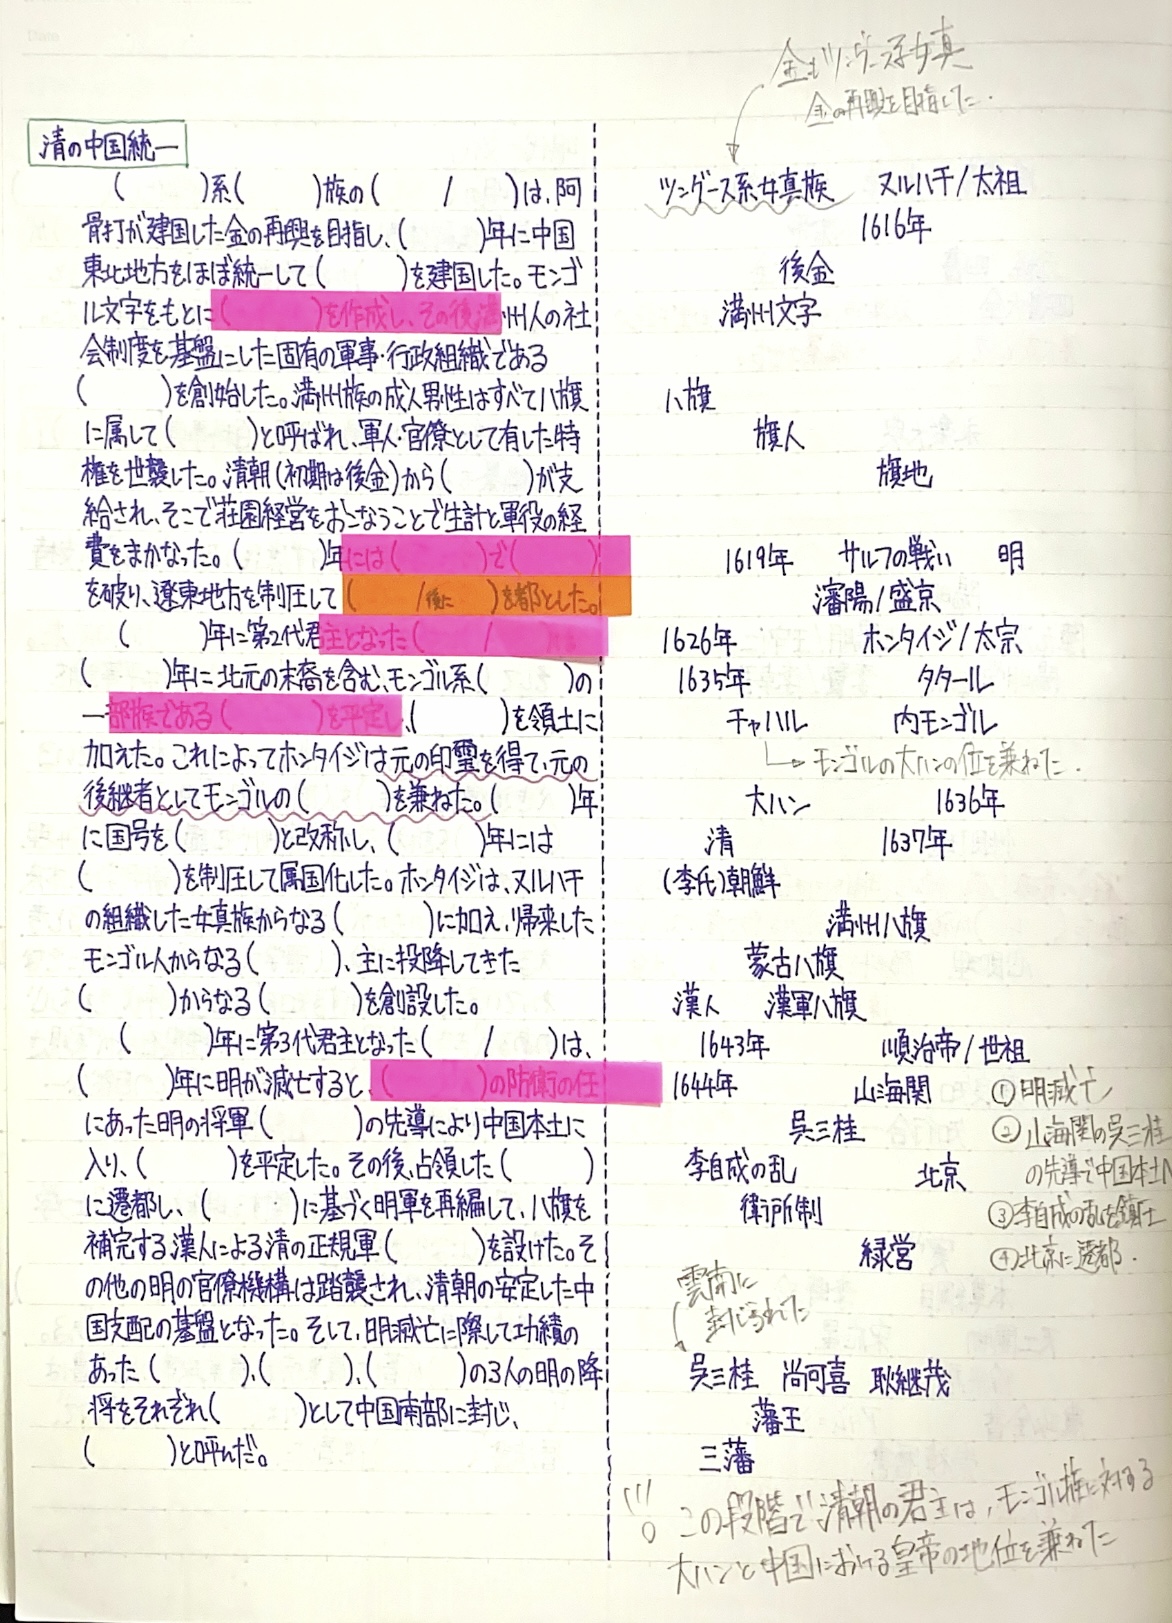 金もツングース系女真
金の再興を目指した.
清の中国統一
(　　　)系(　　　)族の(　　　/　　　)は、阿
ツングース系女真族　ヌルハチ/太祖
骨打が建国した金の再興を目指し、(　　　)年に中国
1616年
東北地方をほぼ統一して(　　　)を建国した。モンゴ
後金
ル文字をもとに(　　　)を作成し、その後満州人の社
満州文字
会制度を基盤にした固有の軍事・行政組織である
(　　　)を創始した。満州族の成人男性はすべて八旗
八旗
に属して(　　　)と呼ばれ、軍人・官僚として有した特
旗人
権を世襲した。清朝(初期は後金)から(　　　)が支
旗地
給され、そこで荘園経営をおこなうことで生計と軍役の経
費をまかなった。(　　　)年には(　　　)で(　　　)
1619年　サルフの戦い　明
を破り、遼東地方を制圧して(　　　/後に　　　)を都とした。
瀋陽/盛京
(　　　)年に第2代君主となった(　　　/　　　)は
1626年　ホンタイジ/太宗
(　　　)年に北元の末裔を含む、モンゴル系(　　　)の
1635年　タタール
一部族である(　　　)を平定し、(　　　)を領土に
チャハル　内モンゴル
加えた。これによってホンタイジは元の印璽を得て、元の
モンゴルの大ハンの位を兼ねた.
後継者としてモンゴルの(　　　)を兼ねた。(　　　)年
大ハン　1636年
に国号を(　　　)と改称し、(　　　)年には
清　1637年
(　　　)を制圧して属国化した。ホンタイジは、ヌルハチ
(李氏)朝鮮
の組織した女真族からなる(　　　)に加え、帰来した
満州八旗
モンゴル人からなる(　　　)、主に投降してきた
蒙古八旗
(　　　)からなる(　　　)を創設した。
漢人　漢軍八旗
(　　　)年に第3代君主となった(　　　/　　　)は、
1643年　順治帝/世祖
(　　　)年に明が滅亡すると、(　　　)の防衛の任
1644年　山海関　①明滅亡
にあった明の将軍(　　　)の先導により中国本土に
呉三桂　②山海関の呉三桂
入り、(　　　)を平定した。その後、占領した(　　　)
李自成の乱　北京　の先導で中国本土へ
に遷都し、(　　　)に基づく明軍を再編して、八旗を
衛所制　③李自成の乱を鎮圧
補完する漢人による清の正規軍(　　　)を設けた。そ
緑営　④北京に遷都.
の他の明の官僚機構は踏襲され、清朝の安定した中
雲南に
国支配の基盤となった。そして、明滅亡に際して功績の
封じられた
あった(　　　)、(　　　)、(　　　)の3人の明の降
呉三桂　尚可喜　耿継茂
将をそれぞれ(　　　)として中国南部に封じ、
藩王
(　　　)と呼んだ。
三藩
この段階で清朝の君主は、モンゴル族に対する
大ハンと中国における皇帝の地位を兼ねた